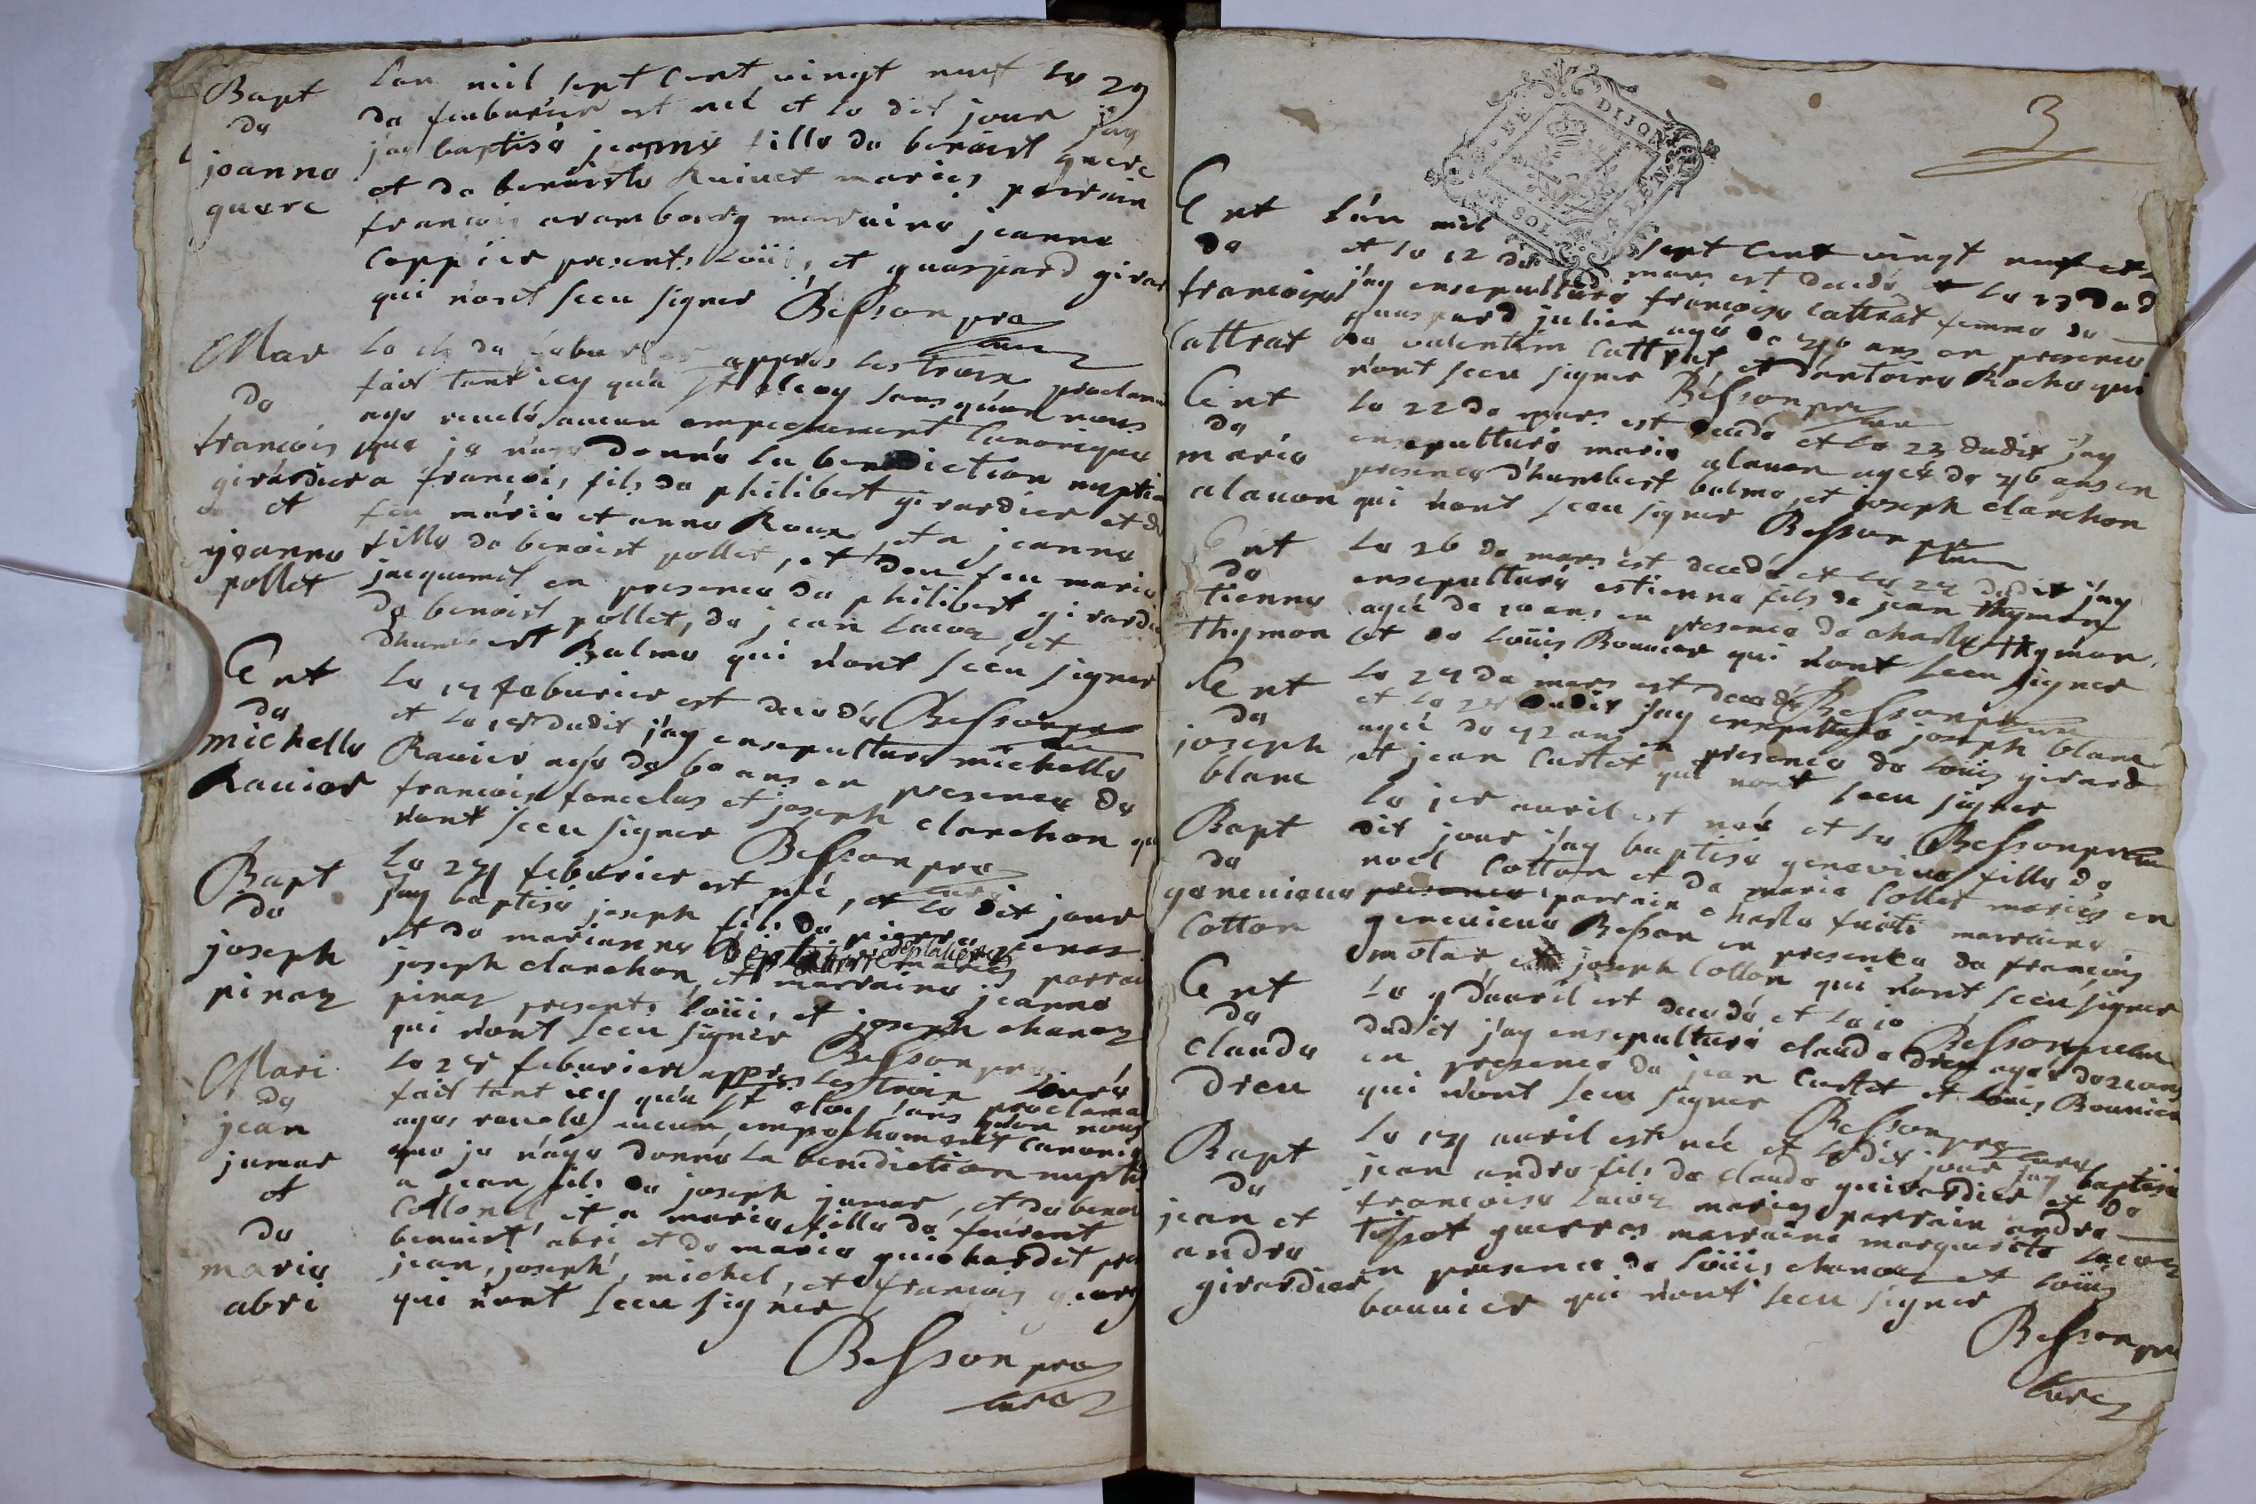 Bapt
de
joanne
guere
Lan mil sept cent vingt neuf le 29
de feubrier est née et le dit jour jay
jay baptisé jeanne fille de benoist guere
et de benoiste Ruinet mariés parrain
francois arambourg marraine jeanne
Coppier presents loüis, et gaaspard girar
qui n'ont sceu signer Besson pre
curez
Mar
de
francois
girardier
et
jeanne
pollet
Le de feburier apprès les trois proclama
fait tant icy qu'a St eloy sans qu'on nous
aye revelé aucun empechement Canonique
que je n'aye donné la benediction nuptia
a francois, fils de philibert girardier et de
feu marie et anne Roux, et a jeanne
fille de benoist pollet, et de feu marie
jacquemet en presence de philibert girardie
de benoist pollet, de jean lacoz et
dhumbert Balme qui n'ont sceu signer
Besson pre
Ent
de
michelle
Ravier
Le 17 feburier est decedé
et le 18 dudit j'ay ensepulturé michelle
Ravier agé de 60 ans en presence de
francois foncelas et joseph clanchon qui
n'ont sceu signer Besson pre
curé
Bapt
de
joseph
pinaz
Le 24 feburier est né, et le dit jour
jay baptisé joseph fils de pierre pinaz
et de marianne mariés parrain
joseph clanchon, et marraine jeanne
pinaz presents loüis, et joseph chanaz
qui n'ont sceu signer Besson pre
Mari
de
jean
jumar
et
de
marie
abri
Le 28 feburier appres les trois
fait tant icy qu'a St eloy sans proclama
ayes revelé aucun empechement canoniq
que je n'aye donné la benediction nuptia
a jean fils de joseph jumar, et de benoi
Collonel et a marie fille de feu
benoist abri et de marie guichardet pre
jean, joseph, michel, et francois
qui n'ont sceu signer
Besson pre
curez
3
DIJON
UN SOL
Ent
de
francoise
Cattrat
L'an mil sept cent vingt neuf et
et le 12 de mars est decedé et le 13 de d
j'ay ensepulturé francoise Cattrat femme de
gaaspard julien agé de 40 ans en presence
de valentin Cattrat, et d'antoine Roche qui
n'ont sceu signer Besson pre
Ent
de
marie
alavon
Le 22 de mars est decedé et le 23 dudit j'ay
ensepulturé marie alavon agée de 46 ans en
presence d'humbert balme, et joseph clanchon
qui n'ont sceu signer Besson pre
Ent
de
tienne
thymon
Le 26 de mars est decedé et le 27 dudit j'ay
ensepulturé estienne fils de jean thymon
agée de 10 ans en presence de charle thymon,
et de loüis Bouvier qui n'ont sceu signer
Besson pre
Ent
de
joseph
blanc
Le 27 de mars est decedé
et le 28 dudit jay ensepulturé joseph blanc
agée de 42 ans en presence de loüis girard
et jean Curtet qui n'ont sceu signer
Besson pre
Bapt
de
genevieve
Cotton
Le 1er avril est née et le
dit jour j'ay baptisé genevieve fille de
noel Cotton et de marie Collet mariés en
presence parrain charle marraine
genevieve Besson en presence de francois
motar, et joseph Collon qui n'ont sceu signer
Ent
de
claude
Dreu
Le 9 d'avril est decedé et le 10 Besson pre
dudit j'ay ensepulturé claude dreu
en presence de jean Curtet et loüis Bouvier
qui n'ont sceu signer Besson pre
Bapt
de
jean et
andre
girardier
Le 14 avril est née et le dit jour jay baptisé
jean andre fils de claude guirardier et de
francoise lacoz mariés parrain andre
tissot guerres marraine marguerite lacoz
en presence de loüis chanaz et loüis
bouvier qui n'ont sceu signer
Besson pre
Curez